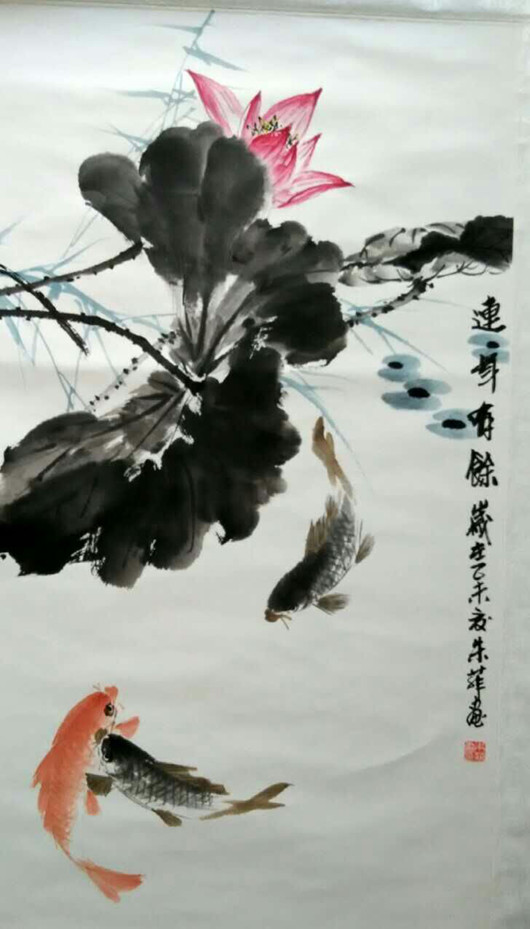 連年有餘歲在乙未夏朱萍画